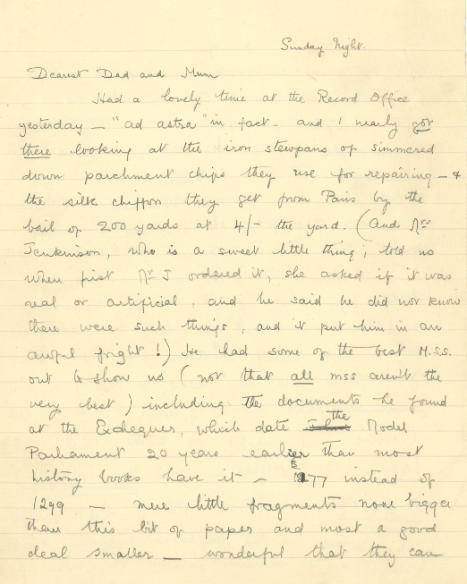 Sunday Night.
Dearest Dad and Mum
Had a lovely time at the Record Office
yesterday — "ad astra" in fact - and I nearly got
there looking at the iron stewpans of simmered
down parchment chips they use for repairing — &
the silk chiffon they get from Paris by the
bail of 200 yards at 4/- the yard. (And Mrs
Jenkinson, who is a sweet little thing, told us
when first Mr J ordered it, she asked if it was
real or artificial, and he said he did not know
there were such things, and it put him in an
awful fright!) He had some of the best M.S.S.
out to show us (not that all mss aren't the
very best) including the documents he found
at the Exchequer, which date the Model
Parliament 20 years earlier than most
history books have it — 1277 instead of
1299 — mere little fragments none bigger
than this bit of paper and most a good
deal smaller — wonderful that they can